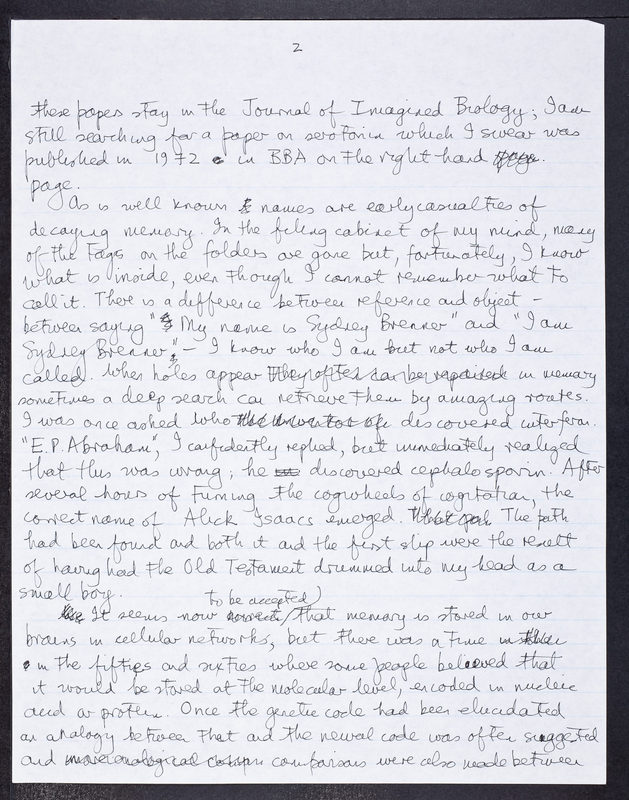 2
these papers stay in the Journal of Imagined Biology; I am
still searching for a paper on serotonin which I swear was
published in 1972 in BBA on the right-hand page.
page.
As is well known names are early casualties of
decaying memory. In the filing cabinet of my mind, many
of the tags on the folders are gone but, fortunately, I know
what is inside, even though I cannot remember what to
call it. There is a difference between reference and object –
between saying " My name is Sydney Brenner" and "I am
Sydney Brenner" – I know who I am but not who I am
called. When holes appear they often can be repaired in memory
sometimes a deep search can retrieve them by amazing routes.
I was once asked who the inventor of discovered interferon.
"E.P. Abraham", I confidently replied, but immediately realized
that this was wrong; he discovered cephalosporin. After
several hours of turning the cogwheels of cogitation, the
correct name of Alick Isaacs emerged. The path
had been found and both it and the first slip were the result
of having had the Old Testament drummed into my head as a
small boy.
to be accepted
It seems now that memory is stored in our
brains in cellular networks, but there was a time
in the fifties and sixties where some people believed that
it would be stored at the molecular level, encoded in nucleic
acid or protein. Once the genetic code had been elucidated
an analogy between that and the neural code was often suggested
and more analogical comparisons were also made between